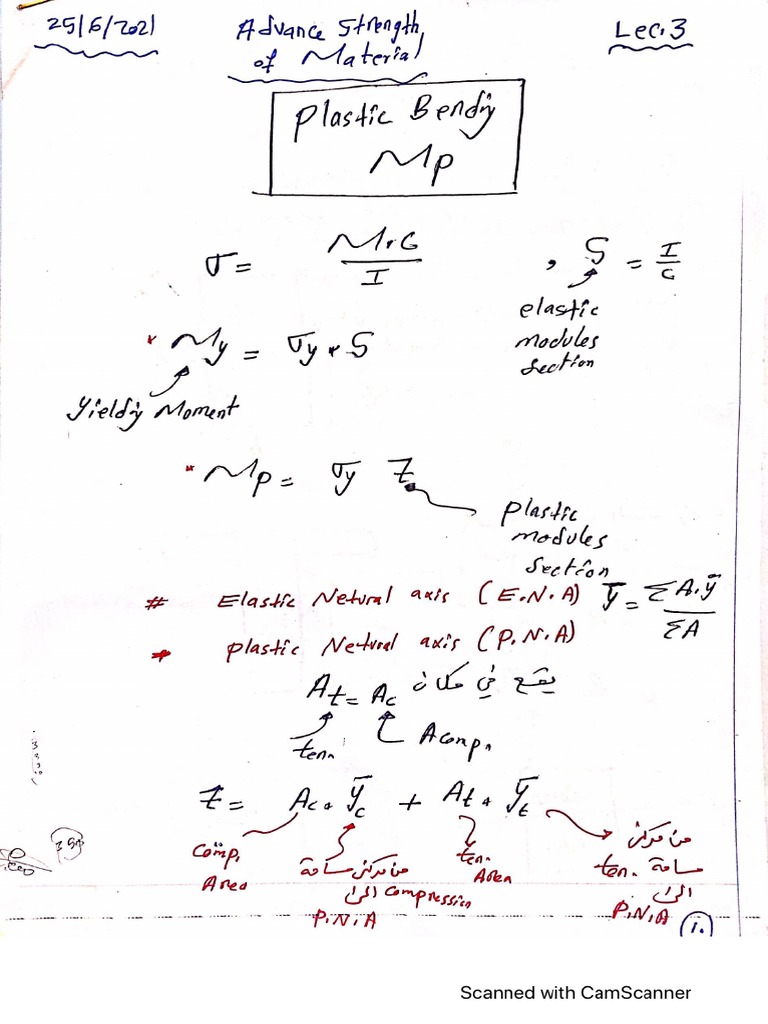 25/6/2021
Advance Strength
of Material
Lec.3
Plastic Bending
Mp
σ = M*C / I , S = I / C
elastic
modules
section
* My = σy * S
Yielding Moment
* Mp = σy Z
plastic
modules
section
# Elastic Netural axis (E.N.A) ȳ = ΣA.ȳ / ΣA
* plastic Netural axis (P.N.A)
At = Ac يقع في مكان
ten. Acomp.
Z = Ac * ȳc + At * ȳt
Comp.
Area
من مركز مساحة
compression الى
P.N.A
ten.
Area
من مركز
مساحة ten.
الى
P.N.A
1.
Scanned with CamScanner